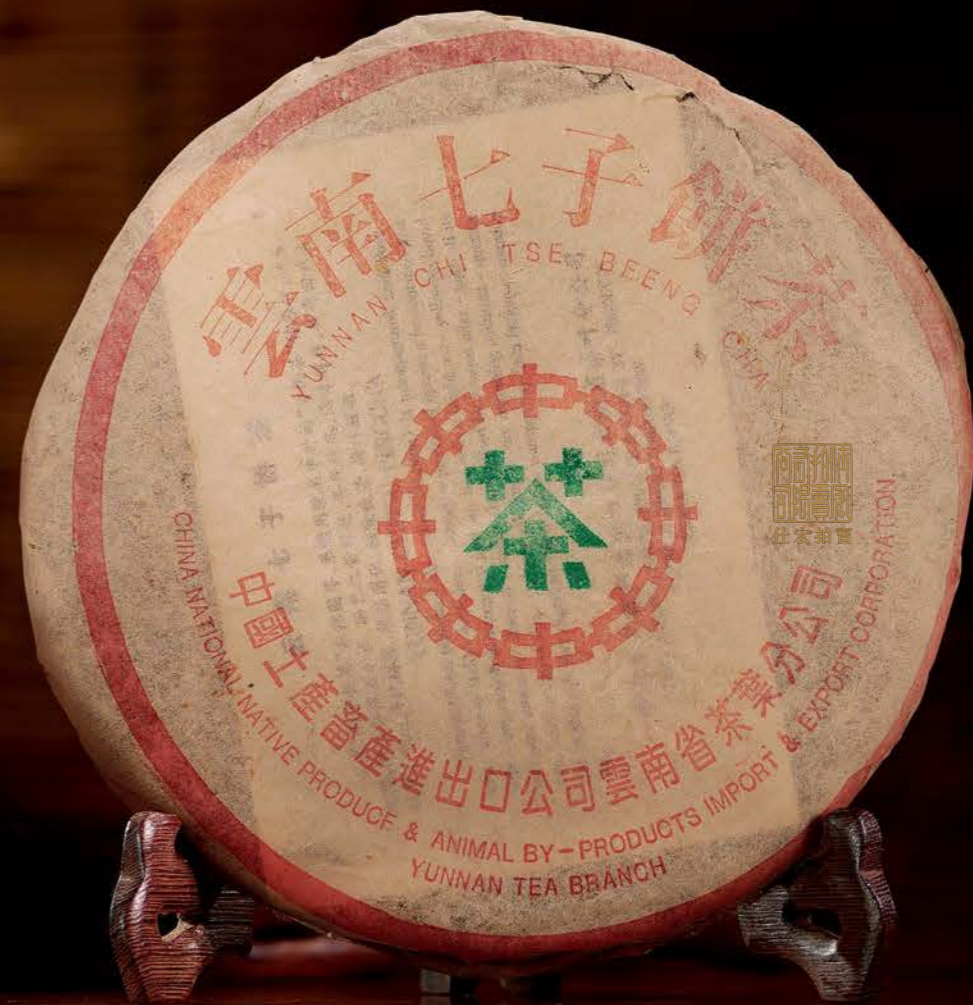 雲南七子餅茶
YUNNAN CHI TSE BEENG CHA
茶
中國土產畜產進出口公司雲南省茶葉分公司
CHINA NATIONAL NATIVE PRODUCE & ANIMAL BY-PRODUCTS IMPORT & EXPORT CORPORATION
YUNNAN TEA BRANCH
仕宏拍賣